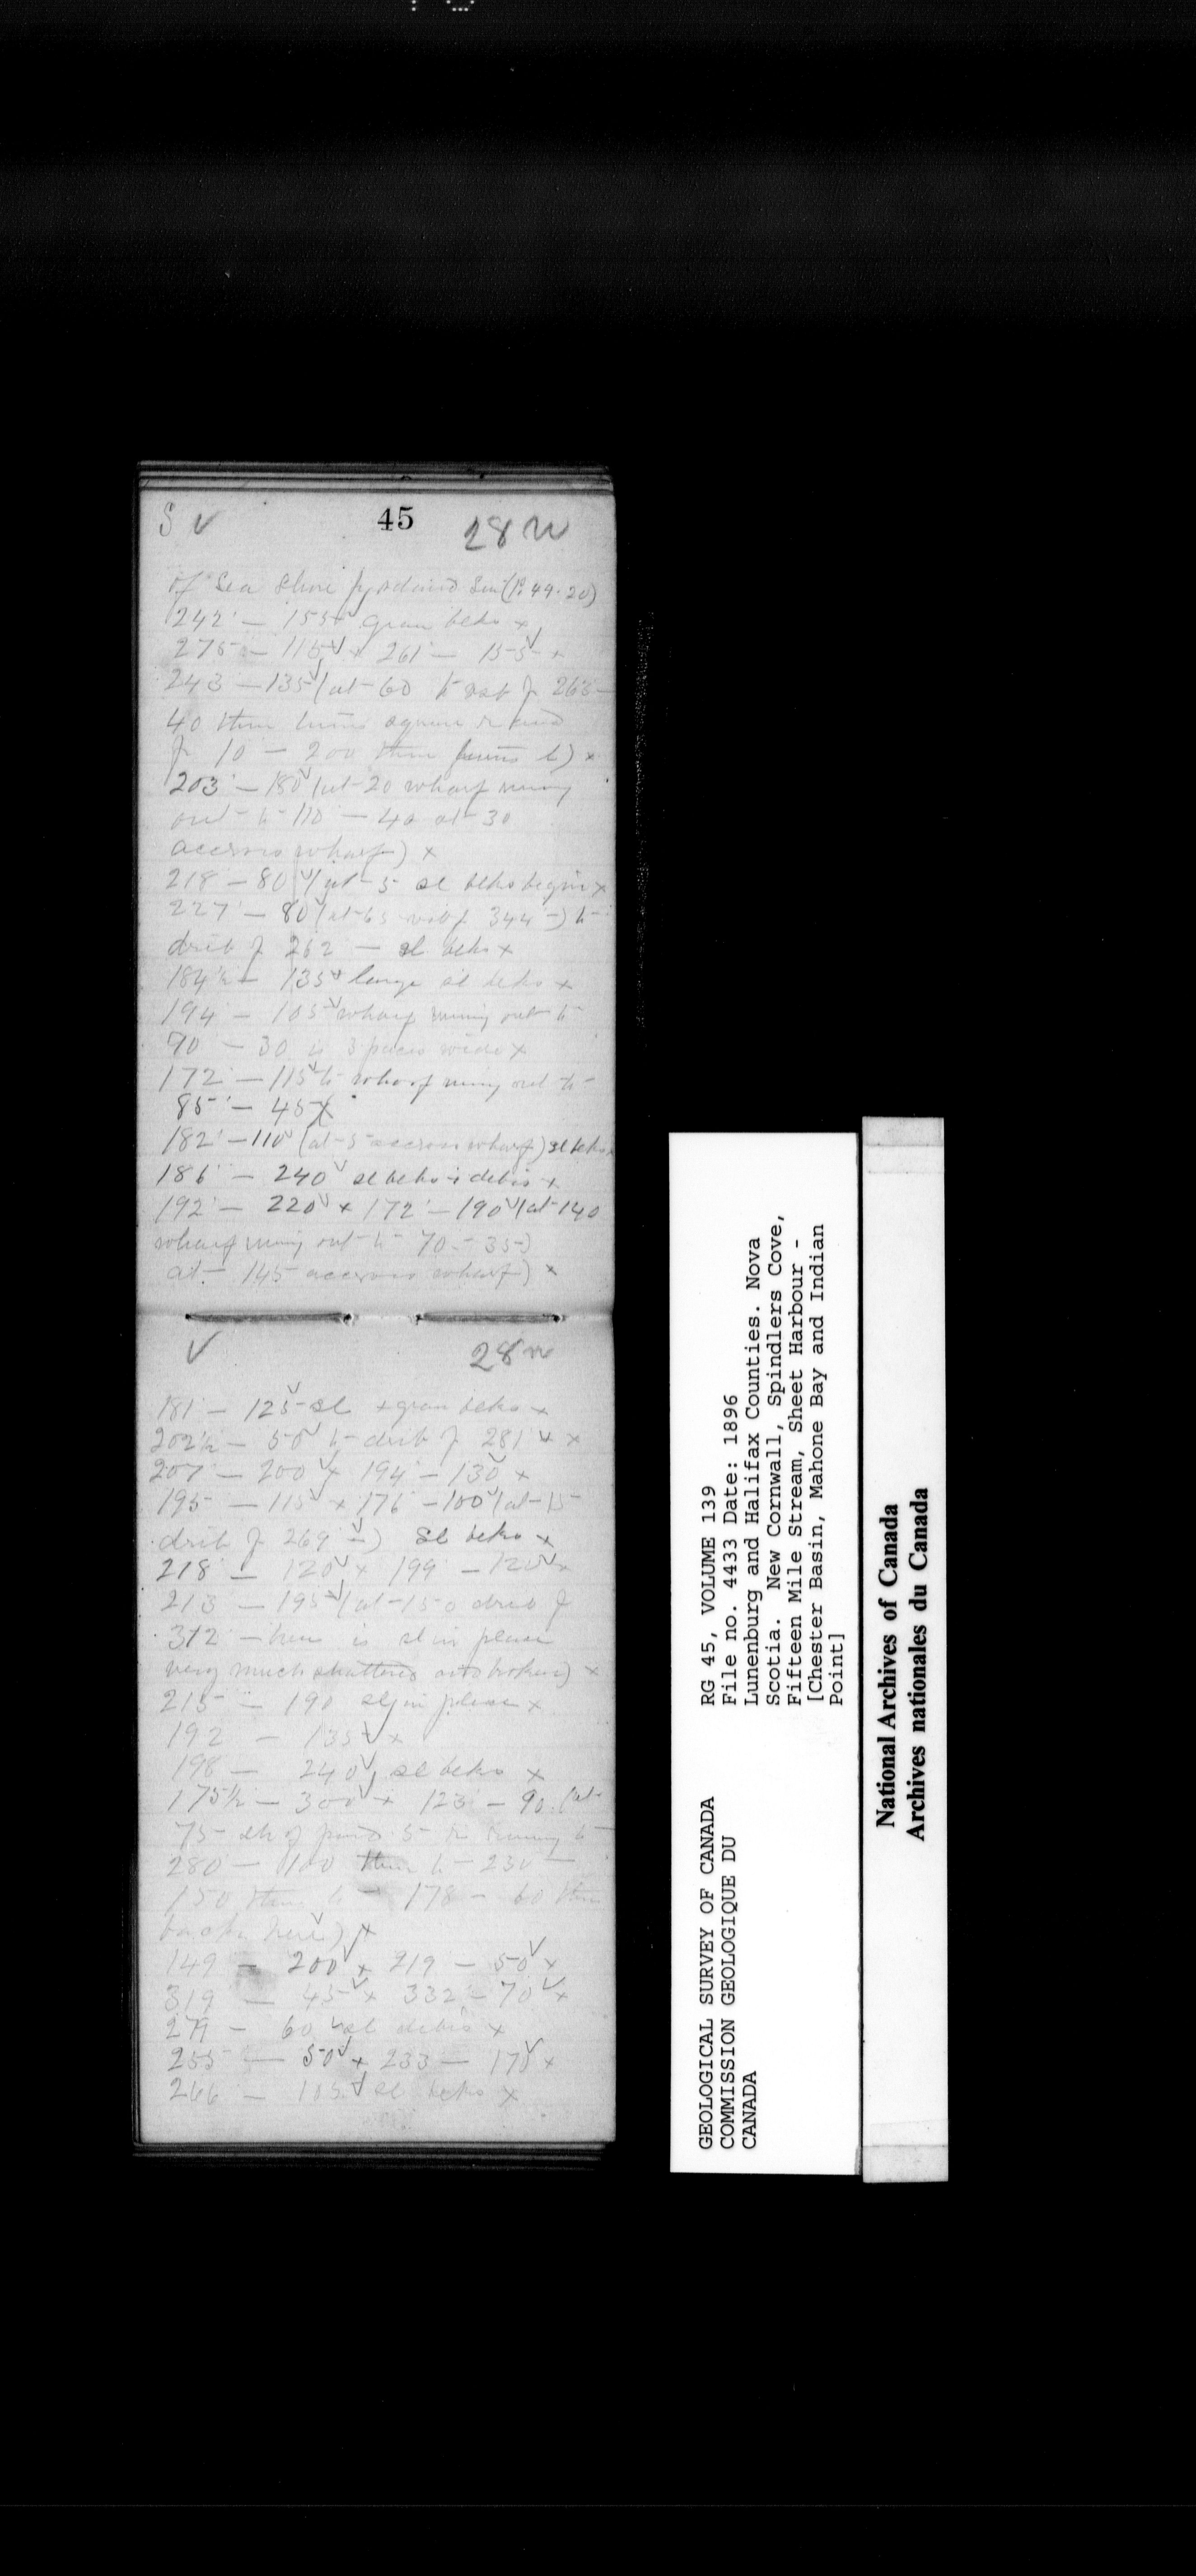 S ✓ 45 28 W
of Sea Shore (P. 44-20)
242 — 155 ✓ gran blks x
275 — 115 ✓ x 261 — 155 ✓ x
243 — 135 ✓ (at 60 to of 263 —
40 then turns again
for 10 — 200 then turns to) x
203 — 180 ✓ (at 20 wharf runing
out to 110 — 40 at 30
accross wharf) x
218 — 80 ✓ (at 5 sl blks begin x
227 — 80 ✓ (at 65 344 —) to
of 262 — sl blks x
184½ — 135 ✓ large sl blks x
194 — 105 ✓ wharf runing out to
90 — 30 is 3 paces wide x
172 — 115 ✓ to wharf runing out to
85 — 45 x
182 — 110 ✓ (at 5 accross wharf) sl blks x
186 — 240 ✓ sl blks + debris x
192 — 220 ✓ x 172 — 190 ✓ (at 140
wharf runing out to 70 — 35)
at 145 accross wharf) x
✓ 28 W
181 — 125 ✓ sl + gran blks x
202½ — 50 ✓ to of 281 ✓ x
207 — 200 ✓ x 194 — 130 ✓ x
195 — 115 ✓ x 176 — 100 ✓ (at 15
of 269 —) sl blks x
218 — 120 ✓ x 199 — 120 ✓ x
213 — 195 ✓ (at 150 of
312 — here is sl in place
very much shattered and broken) x
215 — 190 sl in place x
192 — 135 ✓ x
198 — 240 ✓ sl blks x
175½ — 300 ✓ x 123 — 90 (at
75 sh of pond 5 to runing to
280 — 100 then to 230 —
150 then to 178 — 60 then
back here) x
149 — 200 ✓ x 219 — 50 ✓ x
319 — 45 ✓ x 332 — 70 ✓ x
279 — 60 ✓ sl debris x
255 — 50 ✓ x 233 — 170 ✓ x
266 — 105 ✓ sl blks x
GEOLOGICAL SURVEY OF CANADA
COMMISSION GEOLOGIQUE DU
CANADA
RG 45, VOLUME 139
File no. 4433 Date: 1896
Lunenburg and Halifax Counties. Nova
Scotia. New Cornwall, Spindlers Cove,
Fifteen Mile Stream, Sheet Harbour -
[Chester Basin, Mahone Bay and Indian
Point]
National Archives of Canada
Archives nationales du Canada